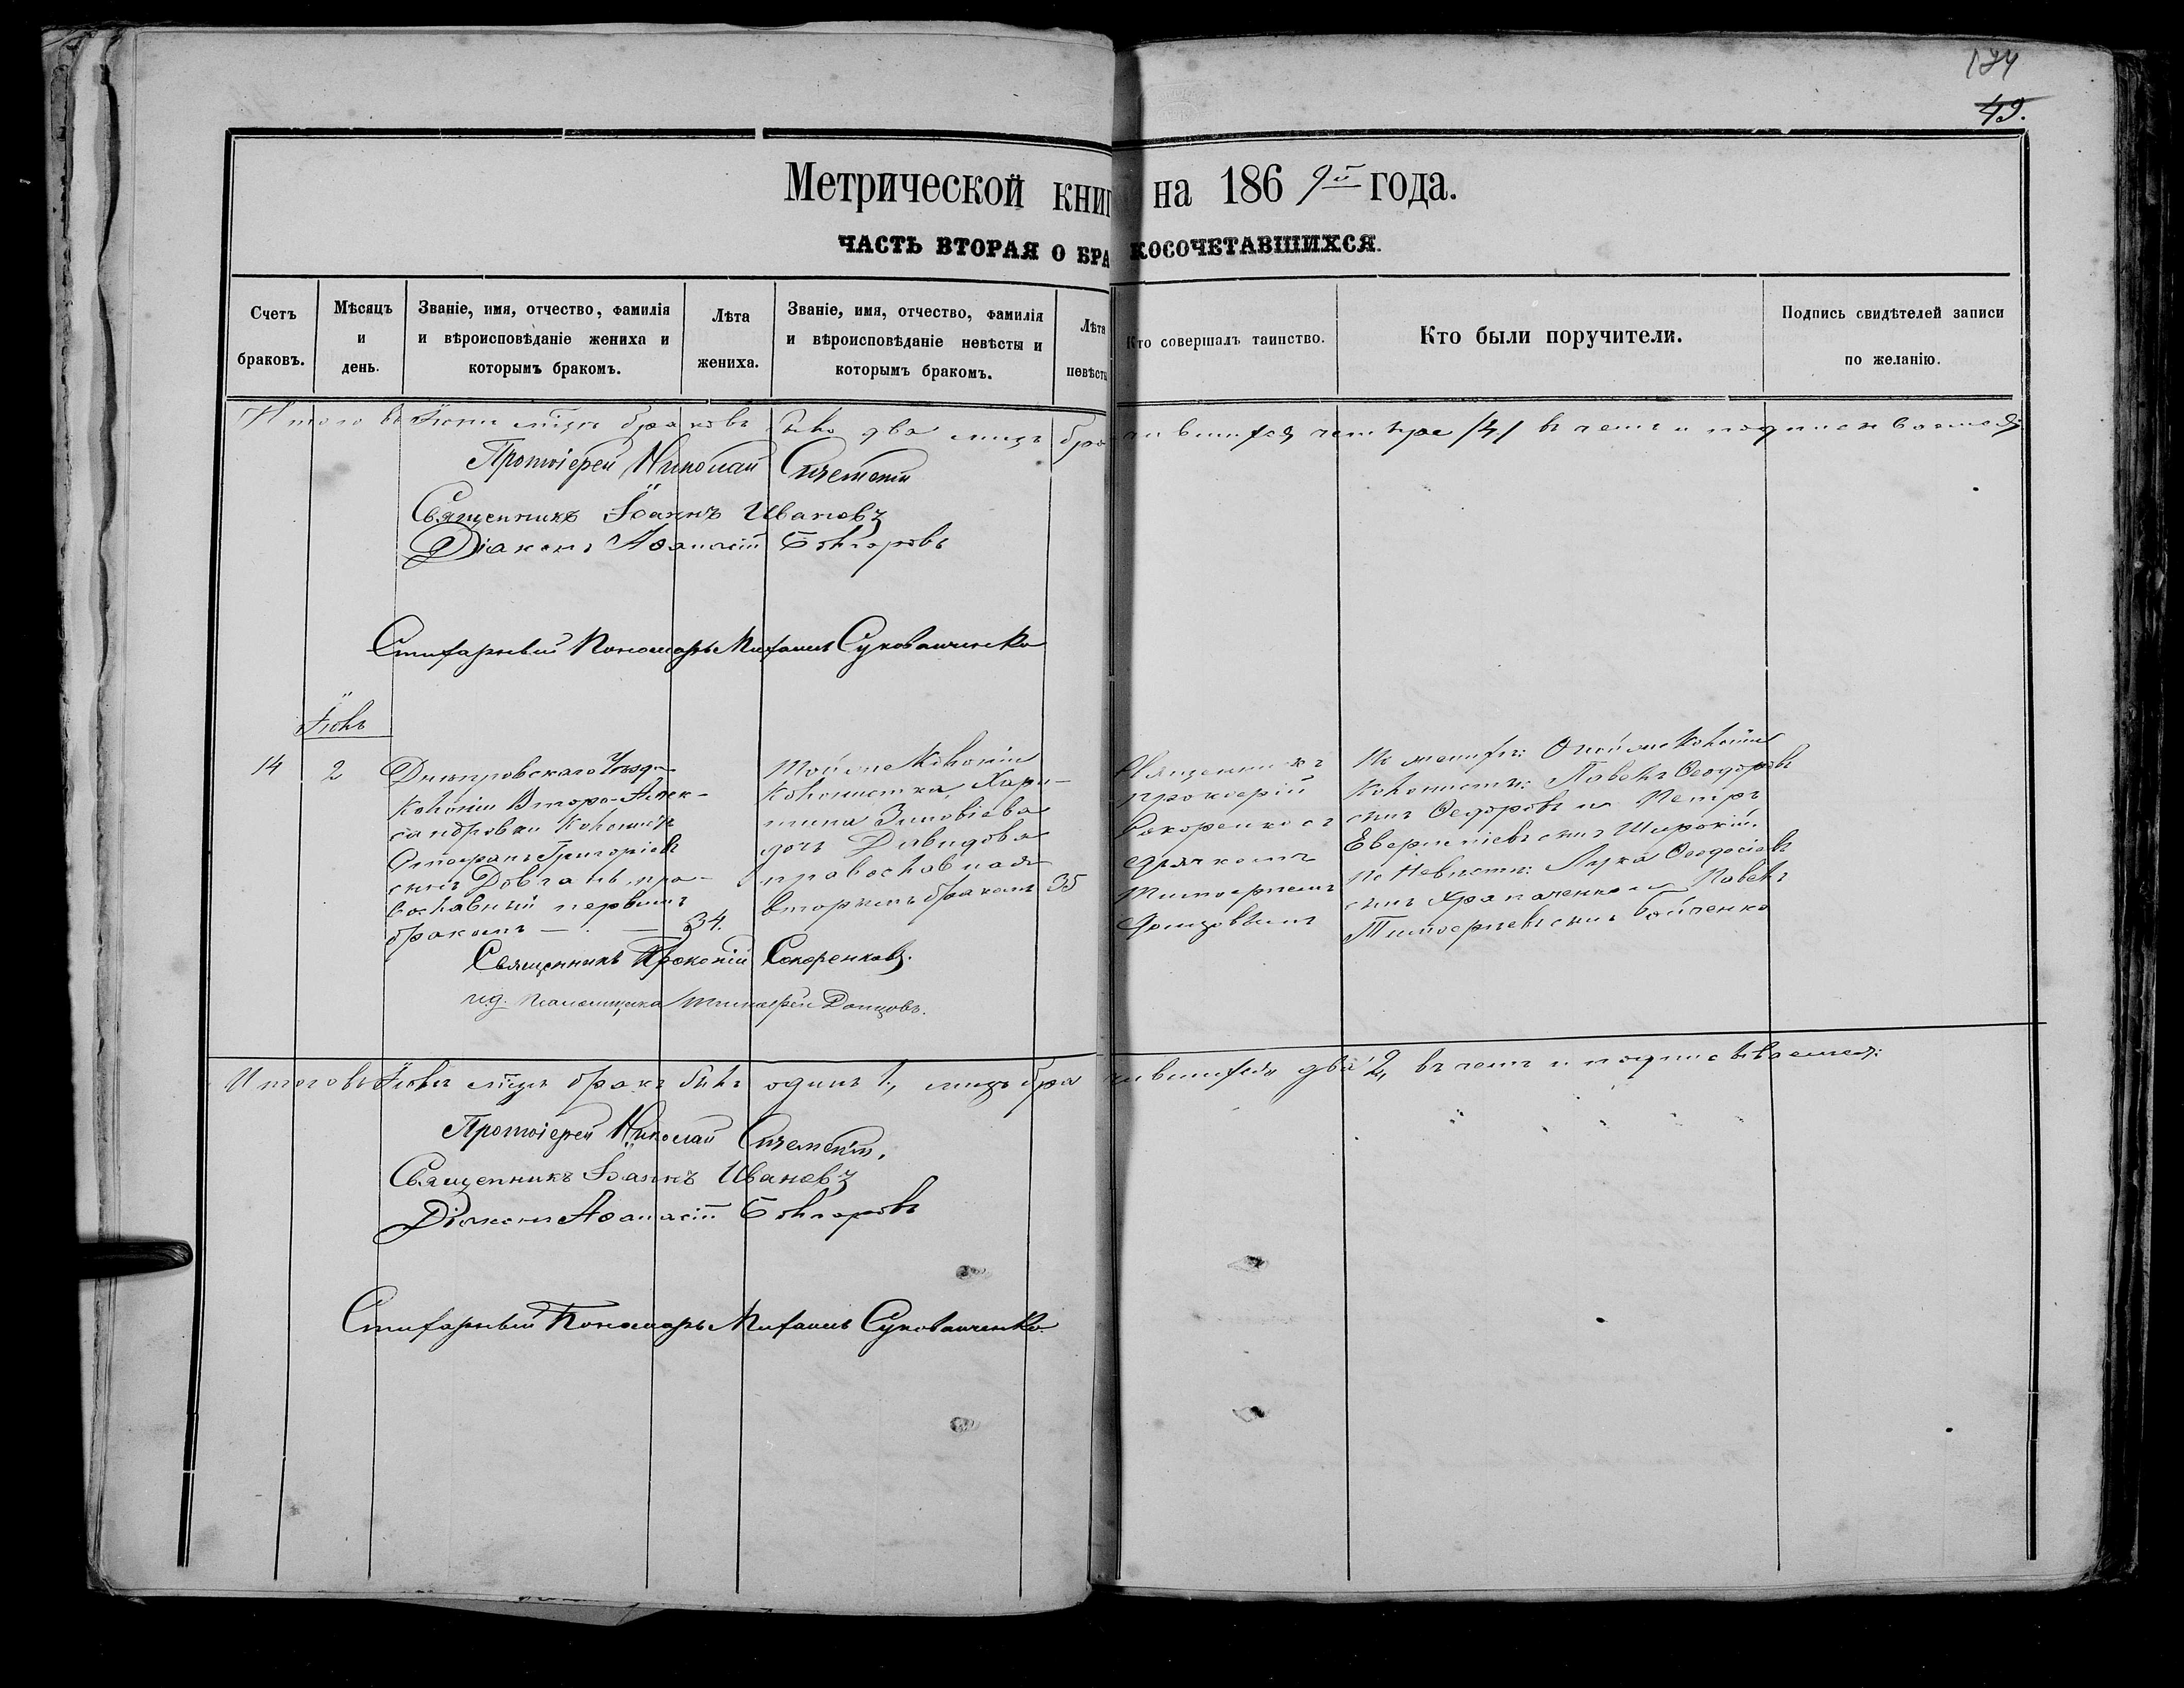 124
49.
Метрической книг на 186 9й года.
ЧАСТЬ ВТОРАЯ О БРАКОСОЧЕТАВШИХСЯ.
Счетъ браковъ.
Мѣсяцъ и день.
Званіе, имя, отчество, фамилія и вѣроисповѣданіе жениха и которымъ бракомъ.
Лѣта жениха.
Званіе, имя, отчество, фамилія и вѣроисповѣданіе невѣсты и которымъ бракомъ.
Лѣта невѣсты
Кто совершалъ таинство.
Кто были поручители.
Подпись свидѣтелей записи по желанію.
Итого въ Іюни мѣцѣ браковъ два лицъ бра чившихся четыре /4/ въ чемъ и подписываемся:
Протоіерей Николай
Священникъ Іоаннъ Ивановъ
Діаконъ Аѳанасій Болгаровъ
Стихарный Пономарь Михаилъ
Іюль
14
2
Днѣпровскаго Уѣзда
Колоніи Второ-Алек-
сандровки Колонистъ
Стефанъ Григоріевъ
сынъ Довгань, пра-
вославный первымъ
бракомъ — . — 34.
Той же Колоніи
Колонистка, Хари-
тина Зиновіева
дочь Давидова
православная
вторымъ бракомъ 35
Священникъ
Прокопій
Сокоренко съ
дьячкомъ
Тимофеемъ
Донцовымъ
По женихѣ: Оной же Колоніи
Колонисты: Павелъ Ѳеодоровъ
сынъ Ѳедоровъ и Петръ
сынъ Широкій.
По Невѣсты: Лука Ѳеодосіевъ
сынъ Храпаченко и Павелъ
Тимофеевъ сынъ Бойченко
Священникъ Прокопій Сокоренковъ.
Тимофей Донцовъ.
Итого въ Іюлѣ мѣцѣ бракъ былъ одинъ 1, лицъ бра чившихся два 2, въ чемъ и подписываемся:
Протоіерей Николай
Священникъ Іоаннъ Ивановъ
Діаконъ Аѳанасій Болгаровъ
Стихарный Пономарь Михаилъ